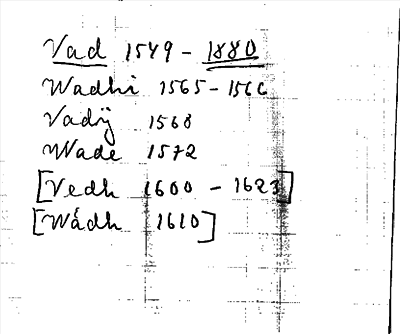 Vad 1549 - 1880
Wadhi 1565 - 1566
Vadÿ 1568
Wade 1572
[Vedh 1600 - 1623]
[Wádh 1610]